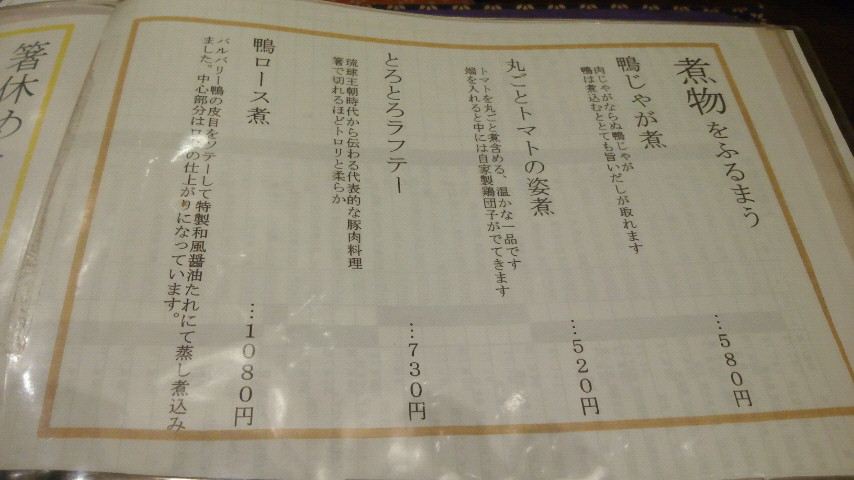 煮物をふるまう
鴨じゃが煮
肉じゃがならぬ鴨じゃが
鴨は煮込むととても旨いだしが取れます
…５８０円
丸ごとトマトの姿煮
トマトを丸ごと煮含める、温かな一品です
端を入れると中には自家製鶏団子がでてきます
…５２０円
とろとろラフテー
琉球王朝時代から伝わる代表的な豚肉料理
箸で切れるほどトロリと柔らか
…７３０円
鴨ロース煮
バルバリー鴨の皮目をソテーして特製和風醤油たれにて蒸し煮込み
ました。中心部分はロゼの仕上がりになっています。
…１０８０円
箸休め